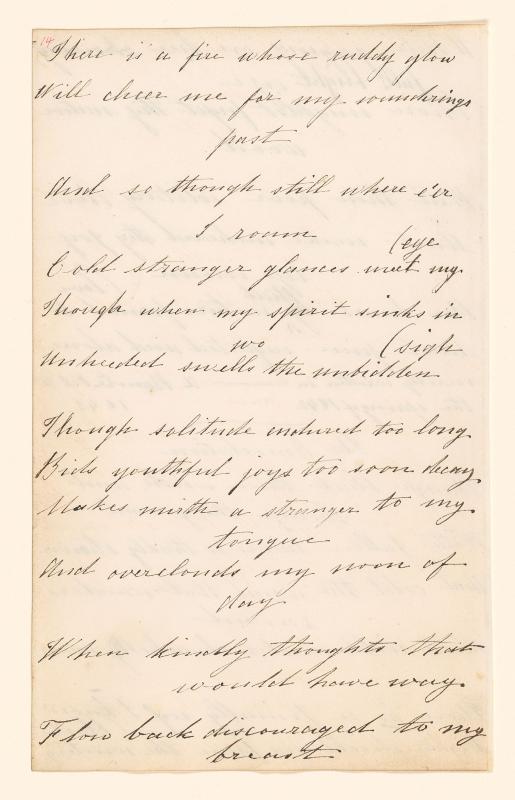 14
There is a fire whose ruddy glow
Will cheer me for my wanderings
past
And so though still where e'er
I roam
(eye
Cold stranger glances meet my
Though when my spirit sinks in
wo
(sigh
Unheeded swells the unbidden
Though solitude endured too long
Bids youthful joys too soon decay
Makes mirth a stranger to my
tongue
And overclouds my noon of
day
When kindly thoughts that
would have way
Flow back discouraged to my
breast